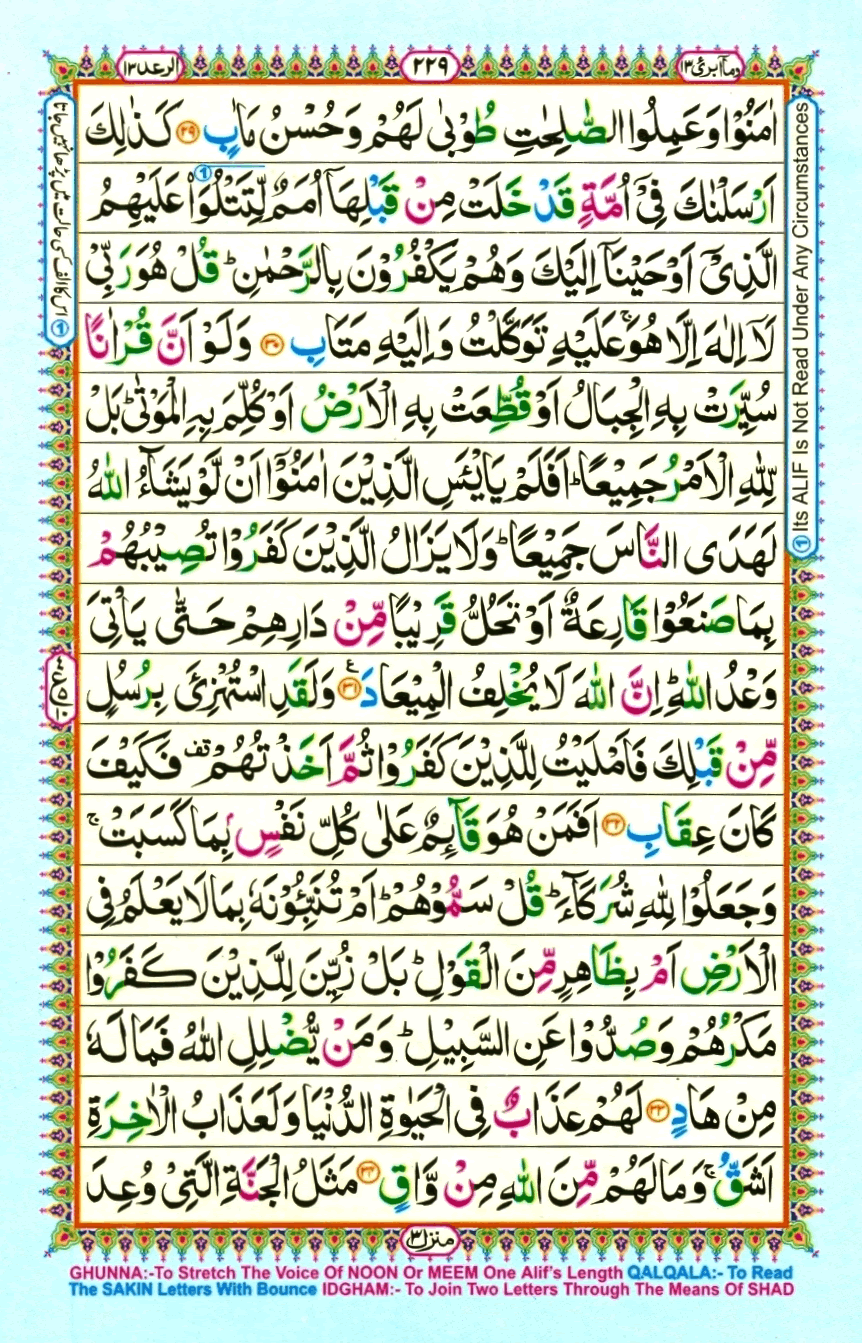 وماابرئ ١٣
٢٢٩
الرعد ١٣
اٰمَنُوْا وَعَمِلُوا الصّٰلِحٰتِ طُوْبٰى لَهُمْ وَحُسْنُ مَاٰبٍ ﴿٢٩﴾ كَذٰلِكَ
اَرْسَلْنٰكَ فِیْۤ اُمَّةٍ قَدْ خَلَتْ مِنْ قَبْلِهَاۤ اُمَمٌ لِّتَتْلُوَا۠ ① عَلَیْهِمُ
الَّذِیْۤ اَوْحَیْنَاۤ اِلَیْكَ وَهُمْ یَكْفُرُوْنَ بِالرَّحْمٰنِ ؕ قُلْ هُوَ رَبِّیْ
لَاۤ اِلٰهَ اِلَّا هُوَ ۚ عَلَیْهِ تَوَكَّلْتُ وَاِلَیْهِ مَتَابِ ﴿٣٠﴾ وَلَوْ اَنَّ قُرْاٰنًا
سُیِّرَتْ بِهِ الْجِبَالُ اَوْ قُطِّعَتْ بِهِ الْاَرْضُ اَوْ كُلِّمَ بِهِ الْمَوْتٰى ؕ بَلْ
لِّلّٰهِ الْاَمْرُ جَمِیْعًا ؕ اَفَلَمْ یَایْـَٔسِ الَّذِیْنَ اٰمَنُوْۤا اَنْ لَّوْ یَشَآءُ اللّٰهُ
لَهَدَی النَّاسَ جَمِیْعًا ؕ وَلَا یَزَالُ الَّذِیْنَ كَفَرُوْا تُصِیْبُهُمْ
بِمَا صَنَعُوْا قَارِعَةٌ اَوْ تَحُلُّ قَرِیْبًا مِّنْ دَارِهِمْ حَتّٰى یَاْتِیَ
وَعْدُ اللّٰهِ ؕ اِنَّ اللّٰهَ لَا یُخْلِفُ الْمِیْعَادَ ﴿٣١﴾ ع وَلَقَدِ اسْتُهْزِئَ بِرُسُلٍ
مِّنْ قَبْلِكَ فَاَمْلَیْتُ لِلَّذِیْنَ كَفَرُوْا ثُمَّ اَخَذْتُهُمْ قف فَكَیْفَ
كَانَ عِقَابِ ﴿٣٢﴾ اَفَمَنْ هُوَ قَآئِمٌ عَلٰى كُلِّ نَفْسٍۭ بِمَا كَسَبَتْ ۚ
وَجَعَلُوْا لِلّٰهِ شُرَكَآءَ ؕ قُلْ سَمُّوْهُمْ ؕ اَمْ تُنَبِّـُٔوْنَهٗ بِمَا لَا یَعْلَمُ فِی
الْاَرْضِ اَمْ بِظَاهِرٍ مِّنَ الْقَوْلِ ؕ بَلْ زُیِّنَ لِلَّذِیْنَ كَفَرُوْا
مَكْرُهُمْ وَصُدُّوْا عَنِ السَّبِیْلِ ؕ وَمَنْ یُّضْلِلِ اللّٰهُ فَمَا لَهٗ
مِنْ هَادٍ ﴿٣٣﴾ لَهُمْ عَذَابٌ فِی الْحَیٰوةِ الدُّنْیَا وَلَعَذَابُ الْاٰخِرَةِ
اَشَقُّ ۚ وَمَا لَهُمْ مِّنَ اللّٰهِ مِنْ وَّاقٍ ﴿٣٤﴾ مَثَلُ الْجَنَّةِ الَّتِیْ وُعِدَ
منزل ٣
① Its ALIF Is Not Read Under Any Circumstances
① اس کا الف کسی حالت میں پڑھا نہیں جاتا
GHUNNA:-To Stretch The Voice Of NOON Or MEEM One Alif's Length QALQALA:- To Read
The SAKIN Letters With Bounce IDGHAM:- To Join Two Letters Through The Means Of SHAD